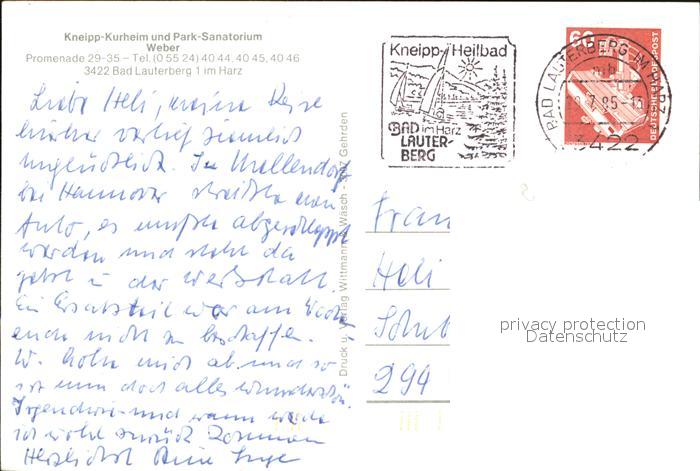 Kneipp-Kurheim und Park-Sanatorium
Weber
Promenade 29-35 – Tel. (0 55 24) 40 44, 40 45, 40 46
3422 Bad Lauterberg 1 im Harz
Liebe Heli, meine Reise
hierher verlief ziemlich
unglücklich. In Mellendorf
bei Hannover streikte mein
Auto, es mußte abgeschleppt
werden und steht da
jetzt in der Werkstatt.
Ein Ersatzteil war am Wochen
ende nicht zu beschaffen.
W. holte mich ab und so
ist nun doch alles
Irgendwie und wann werde
ich wohl zurück kommen
Herzlichst Deine Inge
Druck u. Verlag Wittmann Wäsch - Gehrden
Kneipp-Heilbad
BAD im Harz
LAUTER-
BERG
60
DEUTSCHE BUNDESPOST
BAD LAUTERBERG IM HARZ
mb
7.85-1
3422
Frau
Heli
294
privacy protection
Datenschutz